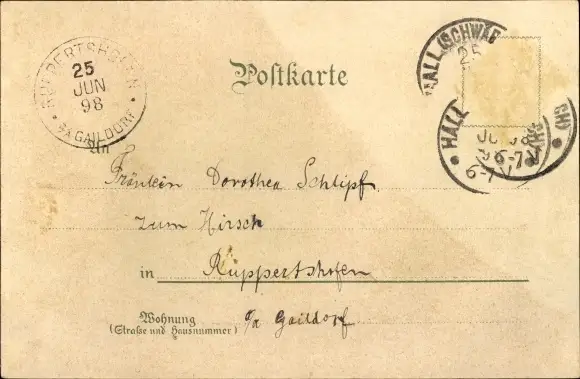 RUPPERTSHOFEN
25
JUN
98
O/A GAILDORF
HALL (SCHWÄB
25
HALL
JU 98
6-7 V
6-7 V
Postkarte
An
Fräulein Dorothea Schlipf
zum Hirsch
in Ruppertshofen
Wohnung o/a Gaildorf
(Straße und Hausnummer)